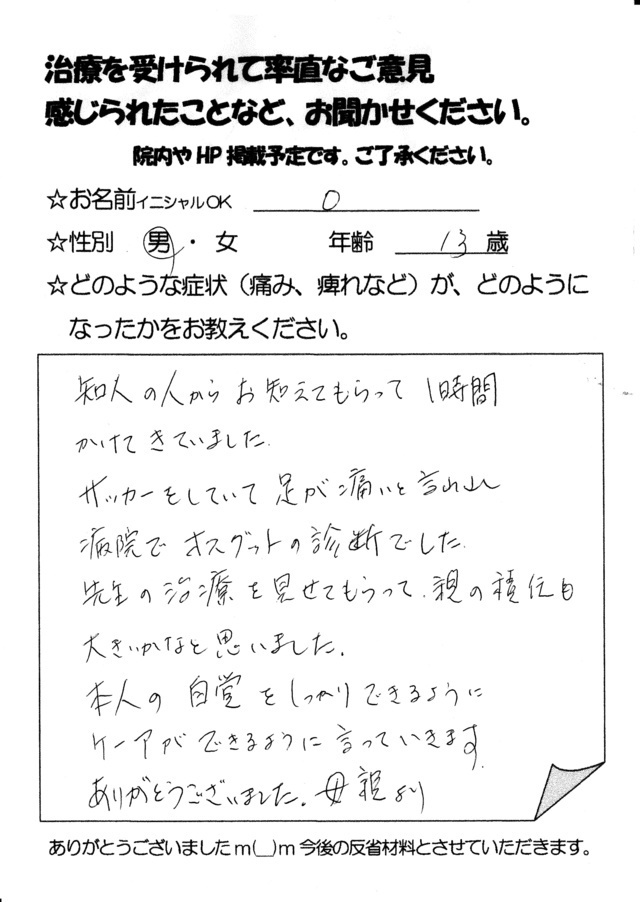 治療を受けられて率直なご意見
感じられたことなど、お聞かせください。
院内やHP掲載予定です。ご了承ください。
☆お名前イニシャルOK O
☆性別 男・女 年齢 13歳
☆どのような症状（痛み、痺れなど）が、どのように
なったかをお教えください。
知人の人からお知えてもらって 1時間
かけてきていました。
サッカーをしていて足が痛いと言われ
病院でオスグットの診断でした。
先生の治療を見せてもらって、親の責任も
大きいかなと思いました。
本人の自覚をしっかりできるように
ケーアができるように言っていきます。
ありがとうございました。母親より
ありがとうございましたm(__)m今後の反省材料とさせていただきます。